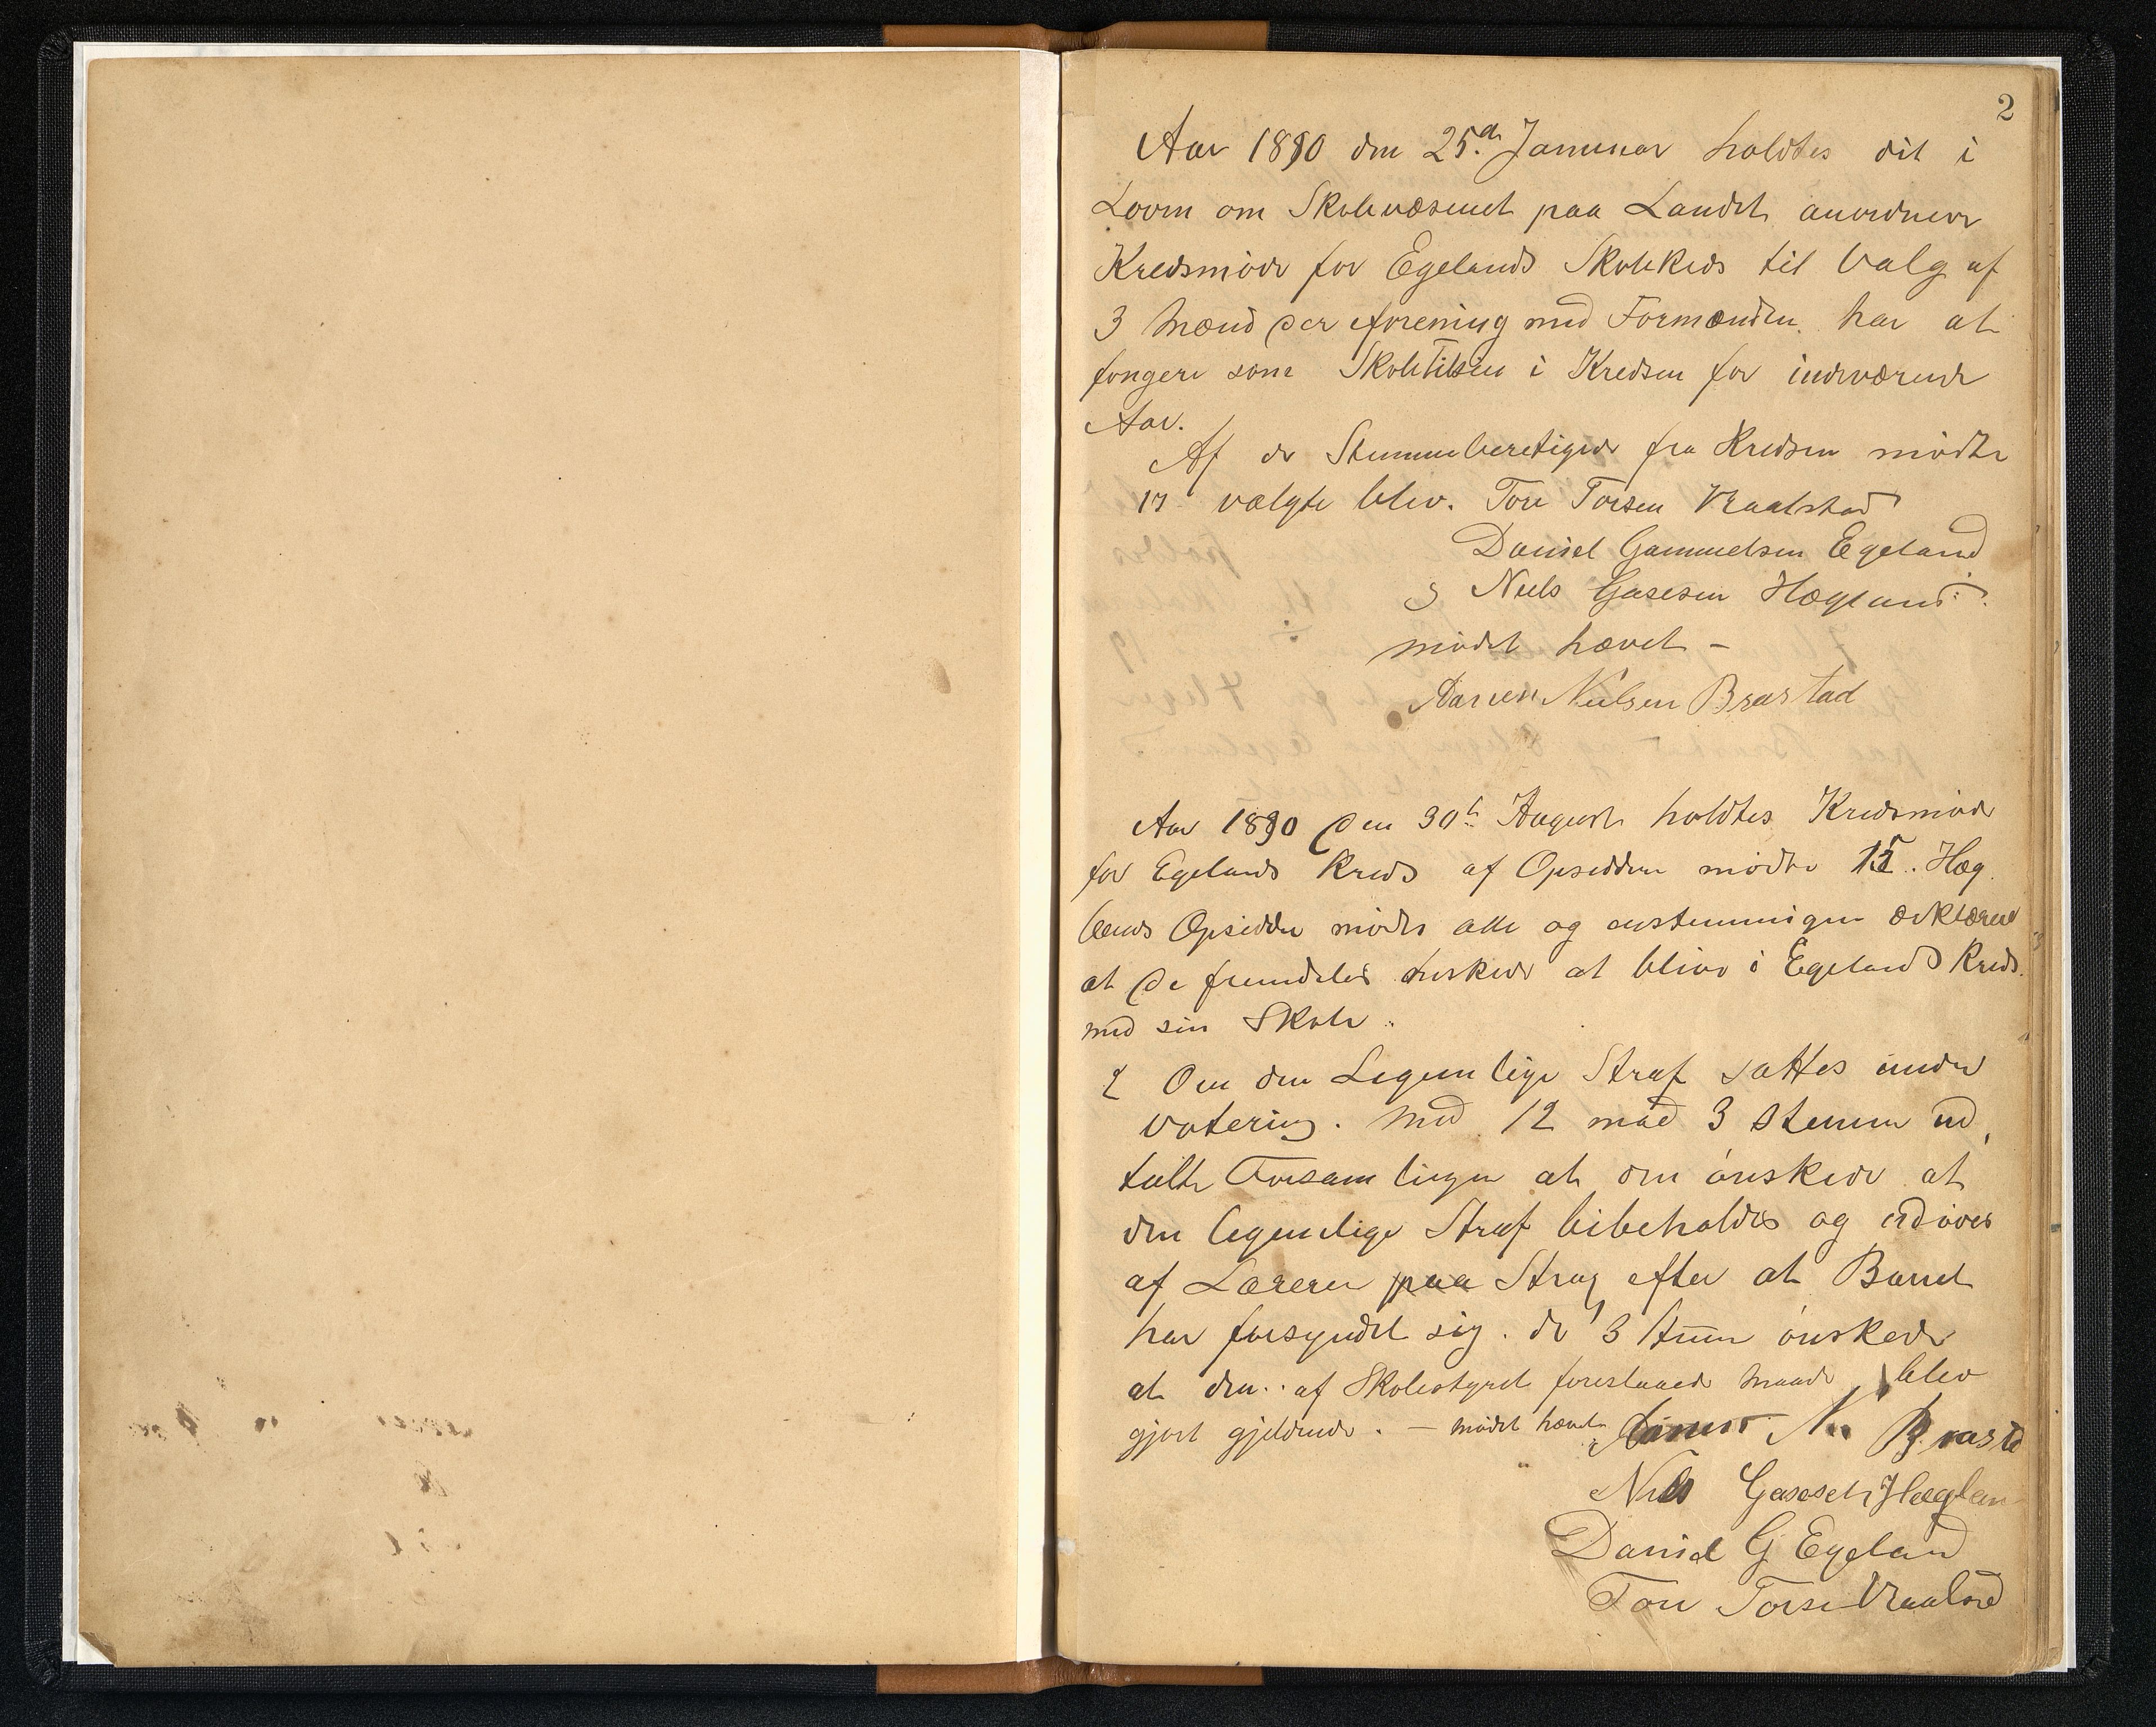 2
Aar 1890 den 25.de Januar holdtes det i
Loven om Skolevæsenet paa Landet anordnede
Kredsmøde for Egelands Skolekreds til Valg af
3 Mænd der iforening med Formanden har at
fungere som Skoletilsin i Kredsen for indeværende
Aar.
Af de Stemmeberetigede fra Kredsen mødte
17 valgte blev. Tore Torsen Vraalstad
Daniel Gammelsen Egeland
3 Niels Gasesen Hægland
mødet hævet –
Nielsen Brastad
Aar 1890 den 30te August holdtes Kredsmøde
for Egelands Kreds af Opsidderne mødte 15. Hæg
lands Opsiddere mødte alle og enstemmigen erklærede
at de fremdeles ønskede at blive i Egelands Kreds
med sin Skole.
2 Om den Legemlige Straf sattes under
votering. Med 12 mod 3 stemmer ud
talte Forsamlingen at den ønskede at
den legemlige Straf bibeholdes og udøves
af Læreren paa Strag efter at Barnet
har forsyndet sig. de 3 stemmer ønskede
at den af Skolestyret foreslaaede Maade blev
gjort gjeldende. – mødet hævet N. Braste
Niels Gasesen Hæglan
Daniel G Egeland
Tore Torse Vraalsed